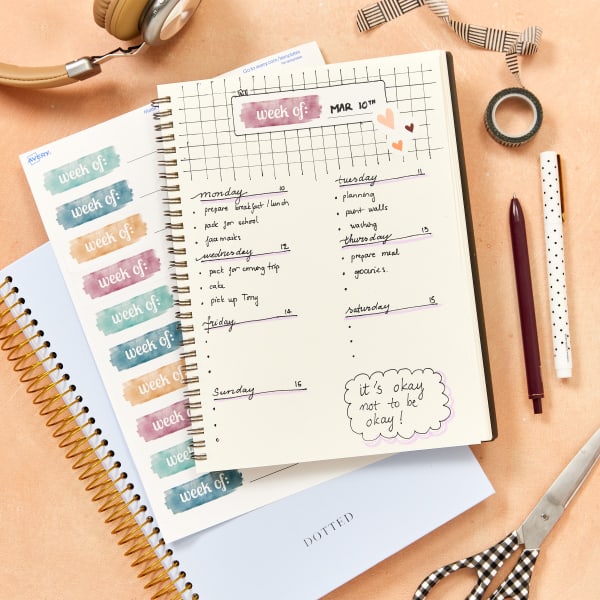 Go to avery.com/templates
AVERY
week of:
week of:
week of:
week of:
week of:
week of:
week of:
week of:
week of:
week of:
week of: MAR 10TH
monday 10
prepare breakfast/lunch
pack for school
face masks
tuesday 11
planning
paint walls
washing
wednesday 12
pack for coming trip
cake
pick up Tony
thursday 13
prepare meal
groceries.
friday 14
saturday 15
Sunday 16
it's okay
not to be
okay!
DOTTED